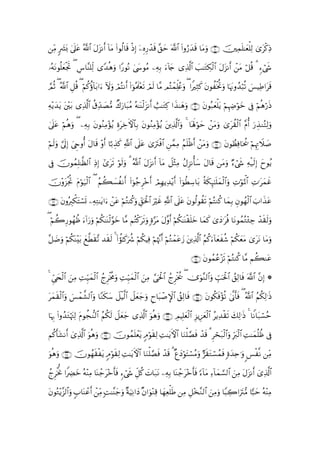 ذِكْرَىٰ لِلْعَٰلَمِينَ وَمَا قَدَرُوا۟ ٱللَّهَ حَقَّ قَدْرِهِۦٓ إِذْ قَالُوا۟ مَآ أَنزَلَ ٱللَّهُ عَلَىٰ بَشَرٍ مِّن
شَىْءٍ ۗ قُلْ مَنْ أَنزَلَ ٱلْكِتَٰبَ ٱلَّذِى جَآءَ بِهِۦ مُوسَىٰ نُورًا وَهُدًى لِّلنَّاسِ ۖ تَجْعَلُونَهُۥ
قَرَاطِيسَ تُبْدُونَهَا وَتُخْفُونَ كَثِيرًا ۖ وَعُلِّمْتُم مَّا لَمْ تَعْلَمُوٓا۟ أَنتُمْ وَلَآ ءَابَآؤُكُمْ ۖ قُلِ ٱللَّهُ ۖ ثُمَّ
ذَرْهُمْ فِى خَوْضِهِمْ يَلْعَبُونَ وَهَٰذَا كِتَٰبٌ أَنزَلْنَٰهُ مُبَارَكٌ مُّصَدِّقُ ٱلَّذِى بَيْنَ يَدَيْهِ
وَلِتُنذِرَ أُمَّ ٱلْقُرَىٰ وَمَنْ حَوْلَهَا ۚ وَٱلَّذِينَ يُؤْمِنُونَ بِٱلْءَاخِرَةِ يُؤْمِنُونَ بِهِۦ ۖ وَهُمْ عَلَىٰ
صَلَاتِهِمْ يُحَافِظُونَ وَمَنْ أَظْلَمُ مِمَّنِ ٱفْتَرَىٰ عَلَى ٱللَّهِ كَذِبًا أَوْ قَالَ أُوحِىَ إِلَىَّ وَلَمْ
يُوحَ إِلَيْهِ شَىْءٌ وَمَن قَالَ سَأُنزِلُ مِثْلَ مَآ أَنزَلَ ٱللَّهُ ۗ وَلَوْ تَرَىٰٓ إِذِ ٱلظَّٰلِمُونَ فِى
غَمَرَٰتِ ٱلْمَوْتِ وَٱلْمَلَٰٓئِكَةُ بَاسِطُوٓا۟ أَيْدِيهِمْ أَخْرِجُوٓا۟ أَنفُسَكُمُ ۖ ٱلْيَوْمَ تُجْزَوْنَ
عَذَابَ ٱلْهُونِ بِمَا كُنتُمْ تَقُولُونَ عَلَى ٱللَّهِ غَيْرَ ٱلْحَقِّ وَكُنتُمْ عَنْ ءَايَٰتِهِۦ تَسْتَكْبِرُونَ
وَلَقَدْ جِئْتُمُونَا فُرَٰدَىٰ كَمَا خَلَقْنَٰكُمْ أَوَّلَ مَرَّةٍ وَتَرَكْتُم مَّا خَوَّلْنَٰكُمْ وَرَآءَ ظُهُورِكُمْ ۖ
وَمَا نَرَىٰ مَعَكُمْ شُفَعَآءَكُمُ ٱلَّذِينَ زَعَمْتُمْ أَنَّهُمْ فِيكُمْ شُرَكَٰٓؤُا۟ ۚ لَقَد تَّقَطَّعَ بَيْنَكُمْ وَضَلَّ
عَنكُم مَّا كُنتُمْ تَزْعُمُونَ
إِنَّ ٱللَّهَ فَالِقُ ٱلْحَبِّ وَٱلنَّوَىٰ ۖ يُخْرِجُ ٱلْحَىَّ مِنَ ٱلْمَيِّتِ وَمُخْرِجُ ٱلْمَيِّتِ مِنَ ٱلْحَىِّ ۚ
ذَٰلِكُمُ ٱللَّهُ ۖ فَأَنَّىٰ تُؤْفَكُونَ فَالِقُ ٱلْإِصْبَاحِ وَجَعَلَ ٱلَّيْلَ سَكَنًا وَٱلشَّمْسَ وَٱلْقَمَرَ
حُسْبَانًا ۚ ذَٰلِكَ تَقْدِيرُ ٱلْعَزِيزِ ٱلْعَلِيمِ وَهُوَ ٱلَّذِى جَعَلَ لَكُمُ ٱلنُّجُومَ لِتَهْتَدُوا۟ بِهَا
فِى ظُلُمَٰتِ ٱلْبَرِّ وَٱلْبَحْرِ ۗ قَدْ فَصَّلْنَا ٱلْءَايَٰتِ لِقَوْمٍ يَعْلَمُونَ وَهُوَ ٱلَّذِىٓ أَنشَأَكُم
مِّن نَّفْسٍ وَٰحِدَةٍ فَمُسْتَقَرٌّ وَمُسْتَوْدَعٌ ۗ قَدْ فَصَّلْنَا ٱلْءَايَٰتِ لِقَوْمٍ يَفْقَهُونَ وَهُوَ
ٱلَّذِىٓ أَنزَلَ مِنَ ٱلسَّمَآءِ مَآءً فَأَخْرَجْنَا بِهِۦ نَبَاتَ كُلِّ شَىْءٍ فَأَخْرَجْنَا مِنْهُ خَضِرًا نُّخْرِجُ
مِنْهُ حَبًّا مُّتَرَاكِبًا وَمِنَ ٱلنَّخْلِ مِن طَلْعِهَا قِنْوَانٌ دَانِيَةٌ وَجَنَّٰتٍ مِّنْ أَعْنَابٍ وَٱلزَّيْتُونَ